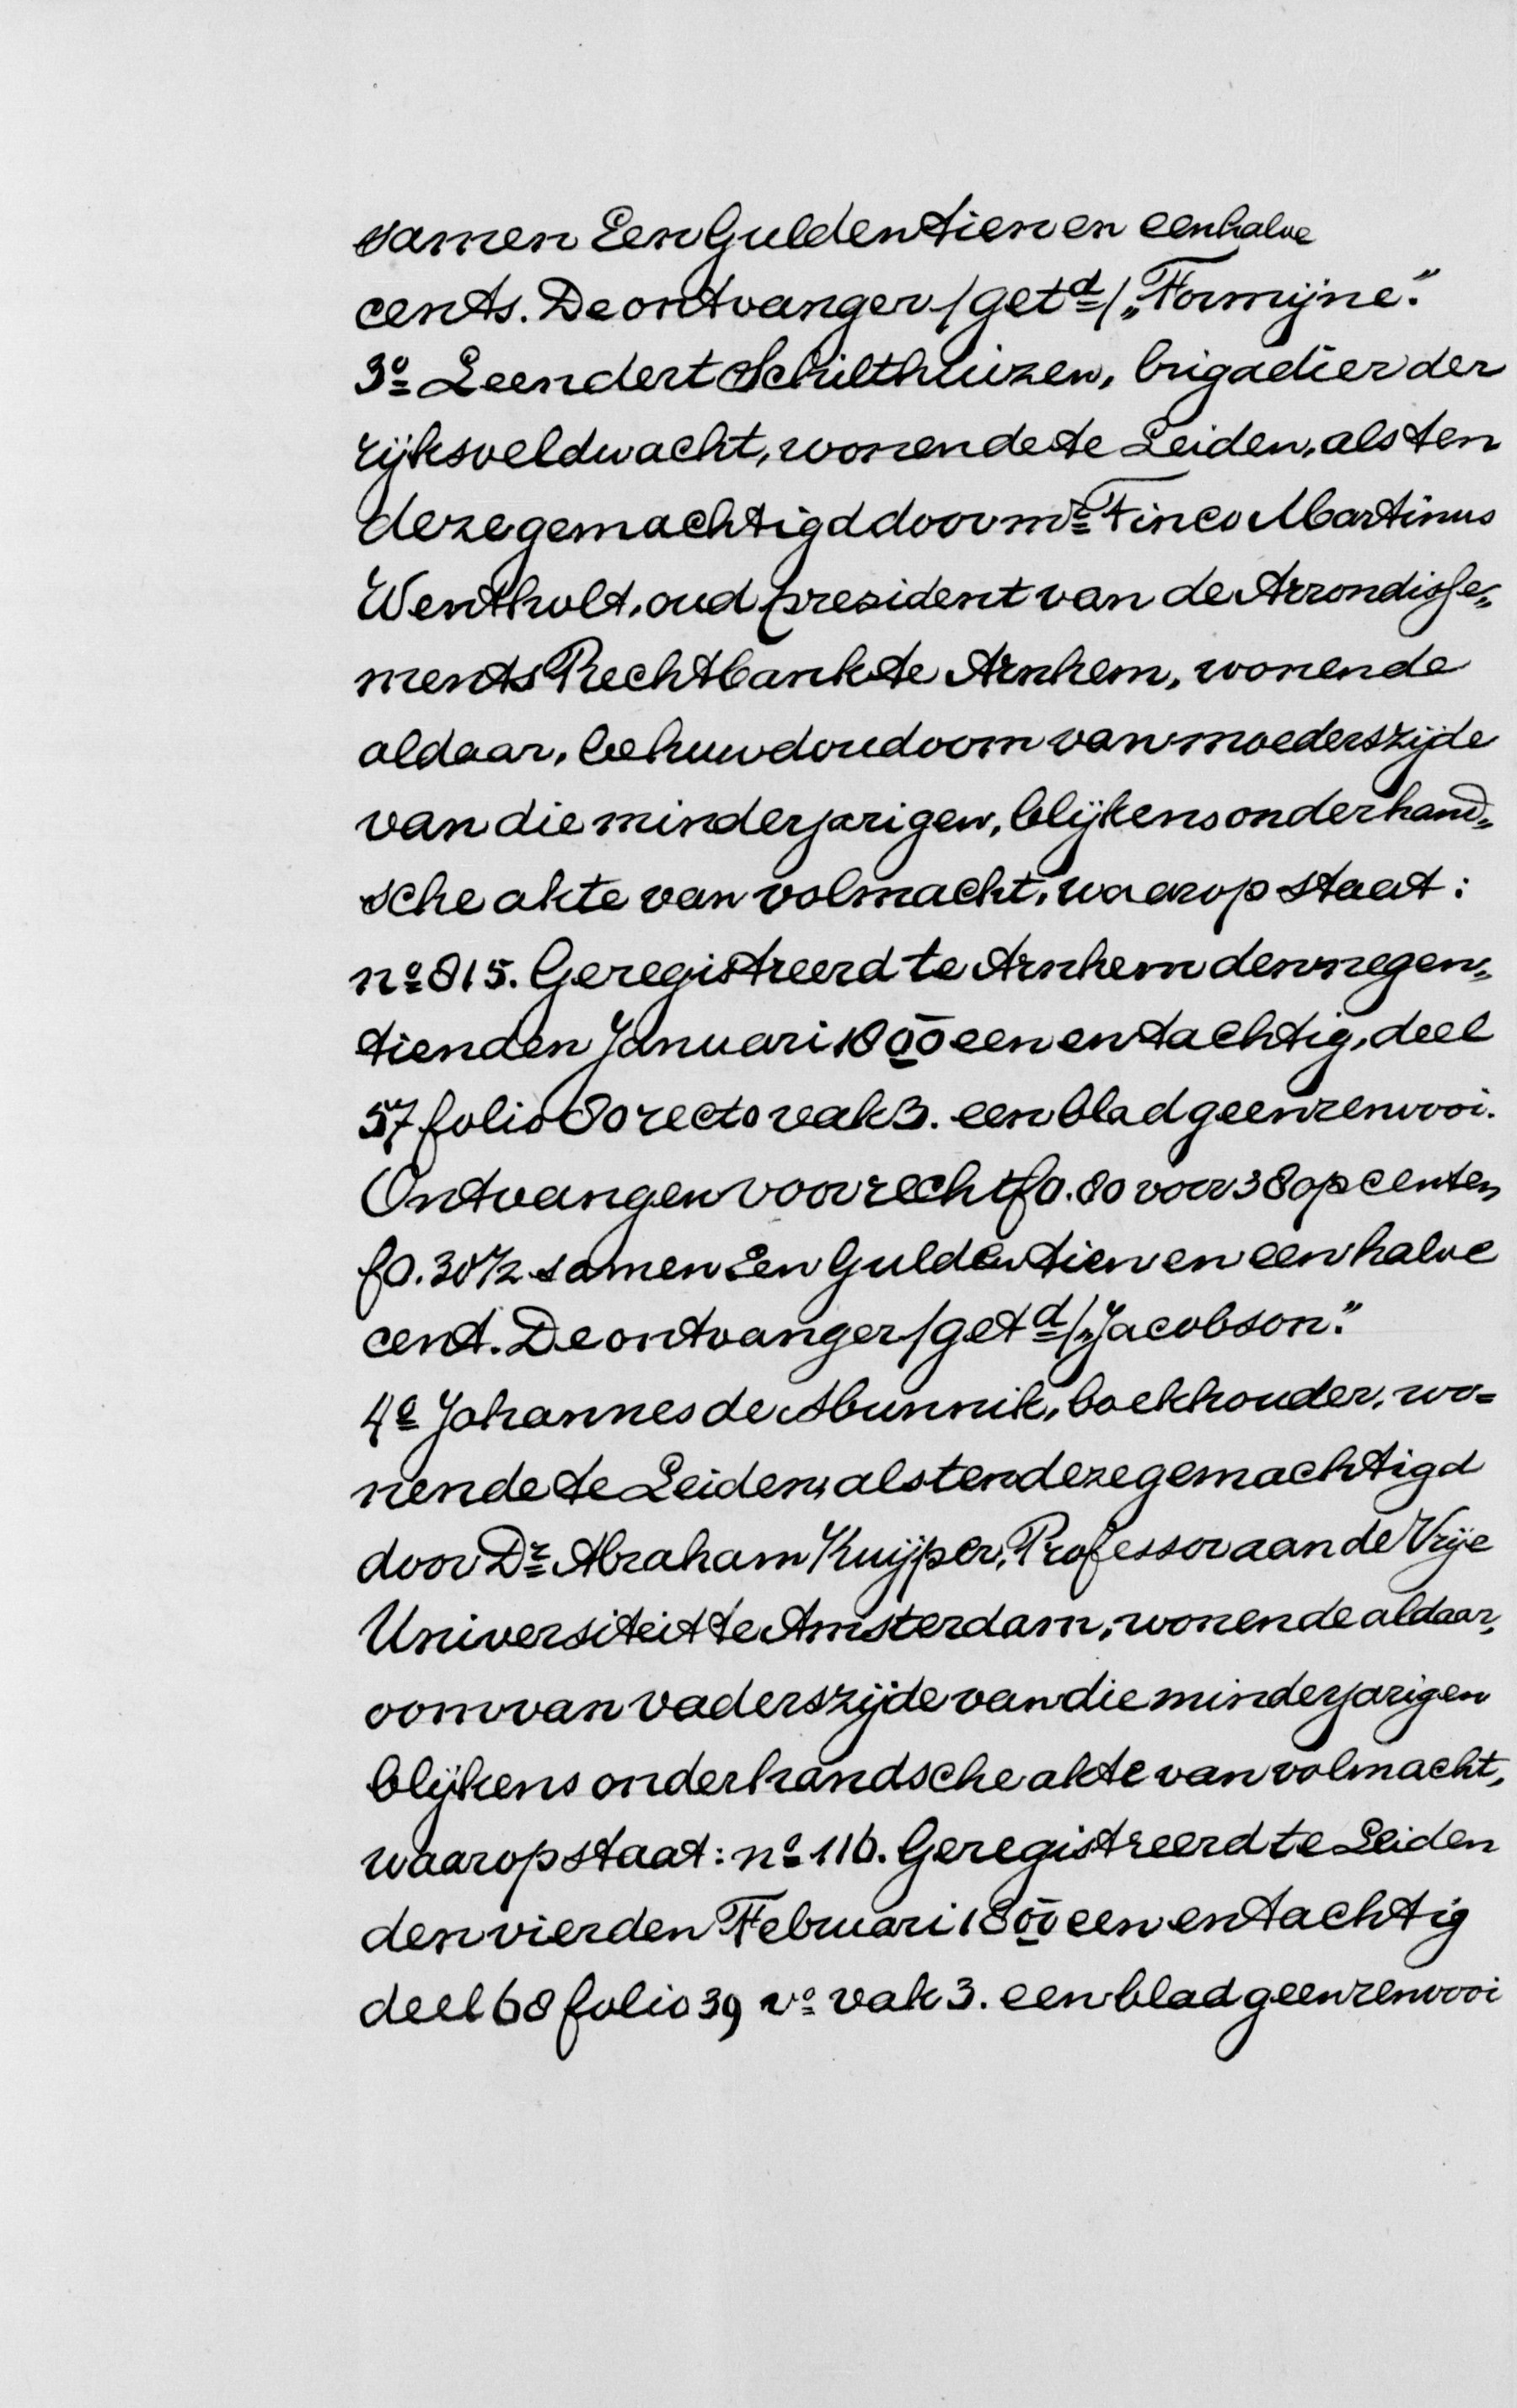 samen Een Gulden tien en een halve
cents. De ontvanger /get<sup>d</sup>/ „Formijne."
3º Leendert Schilthuizen, brigadier der
rijksveldwacht, wonende te Leiden, als ten
deze gemachtigd door mr Finco Martinus
Wentholt, oud president van de Arrondisse„
ments Rechtbank te Arnhem, wonende
aldaar, behuwdoudoom van moederszijde
van die minderjarigen, blijkens onderhand„
sche akte van volmacht, waarop staat:
nº 815. Geregistreerd te Arnhem den negen„
tienden Januari 1800 een en tachtig, deel
57 folio 80 recto vak 3. een blad geen renvooi.
Ontvangen voor recht f 0.80 voor 38 opcenten
f 0.30½ samen Een Gulden tien en een halve
cent. De ontvanger /get<sup>d</sup>/ „Jacobson."
4º Johannes de Munnik, boekhouder, wo=
nende te Leiden, als ten deze gemachtigd
door Dr Abraham Kuijper, Professor aan de Vrije
Universiteit te Amsterdam, wonende aldaar,
oom van vaderszijde van die minderjarigen
blijkens onderhandsche akte van volmacht,
waarop staat: nº 116. Geregistreerd te Leiden
den vierden Februari 1800 een en tachtig
deel 68 folio 39 vº vak 3. een blad geen renvooi